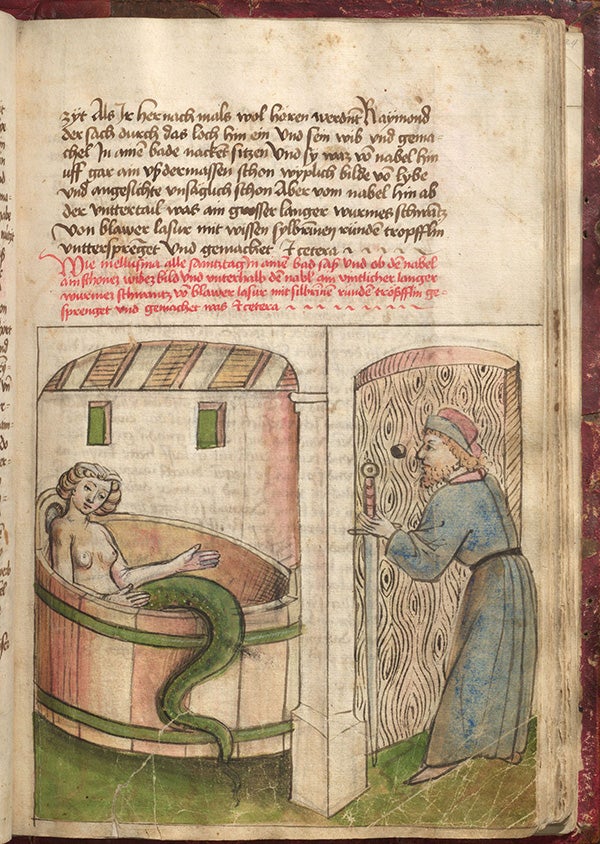 zÿt Als Ir her nach mals wol hören werdent Raÿmond
der sach durch das loch hin ein Vnd sen wib vnd gema-
chel In ainē bade nacket sitzen Vnd sÿ waz vō nabel hin
uff gar ain vßdermassen schon wyplich bilde vō lybe
vnd angesichte vnsäglich schon Aber vom nabel hin ab
der vnttertail was ain grosser langer wurmes schwātz
von blawer lasur mit wissen sylbrinen runde tropfflin
vnttersprenget Vnd gemachet Et cetera
Wie mellusina alle samtztag in ainē bad saß vnd ob dē nabel
ain schönes wibz bild vnd vnterhalb dē nabl ain langer
wurmes schwantz vō blawer lasur mit silbrinē runden tropfflin ge-
sprenget vnd gemachet was Et cetera